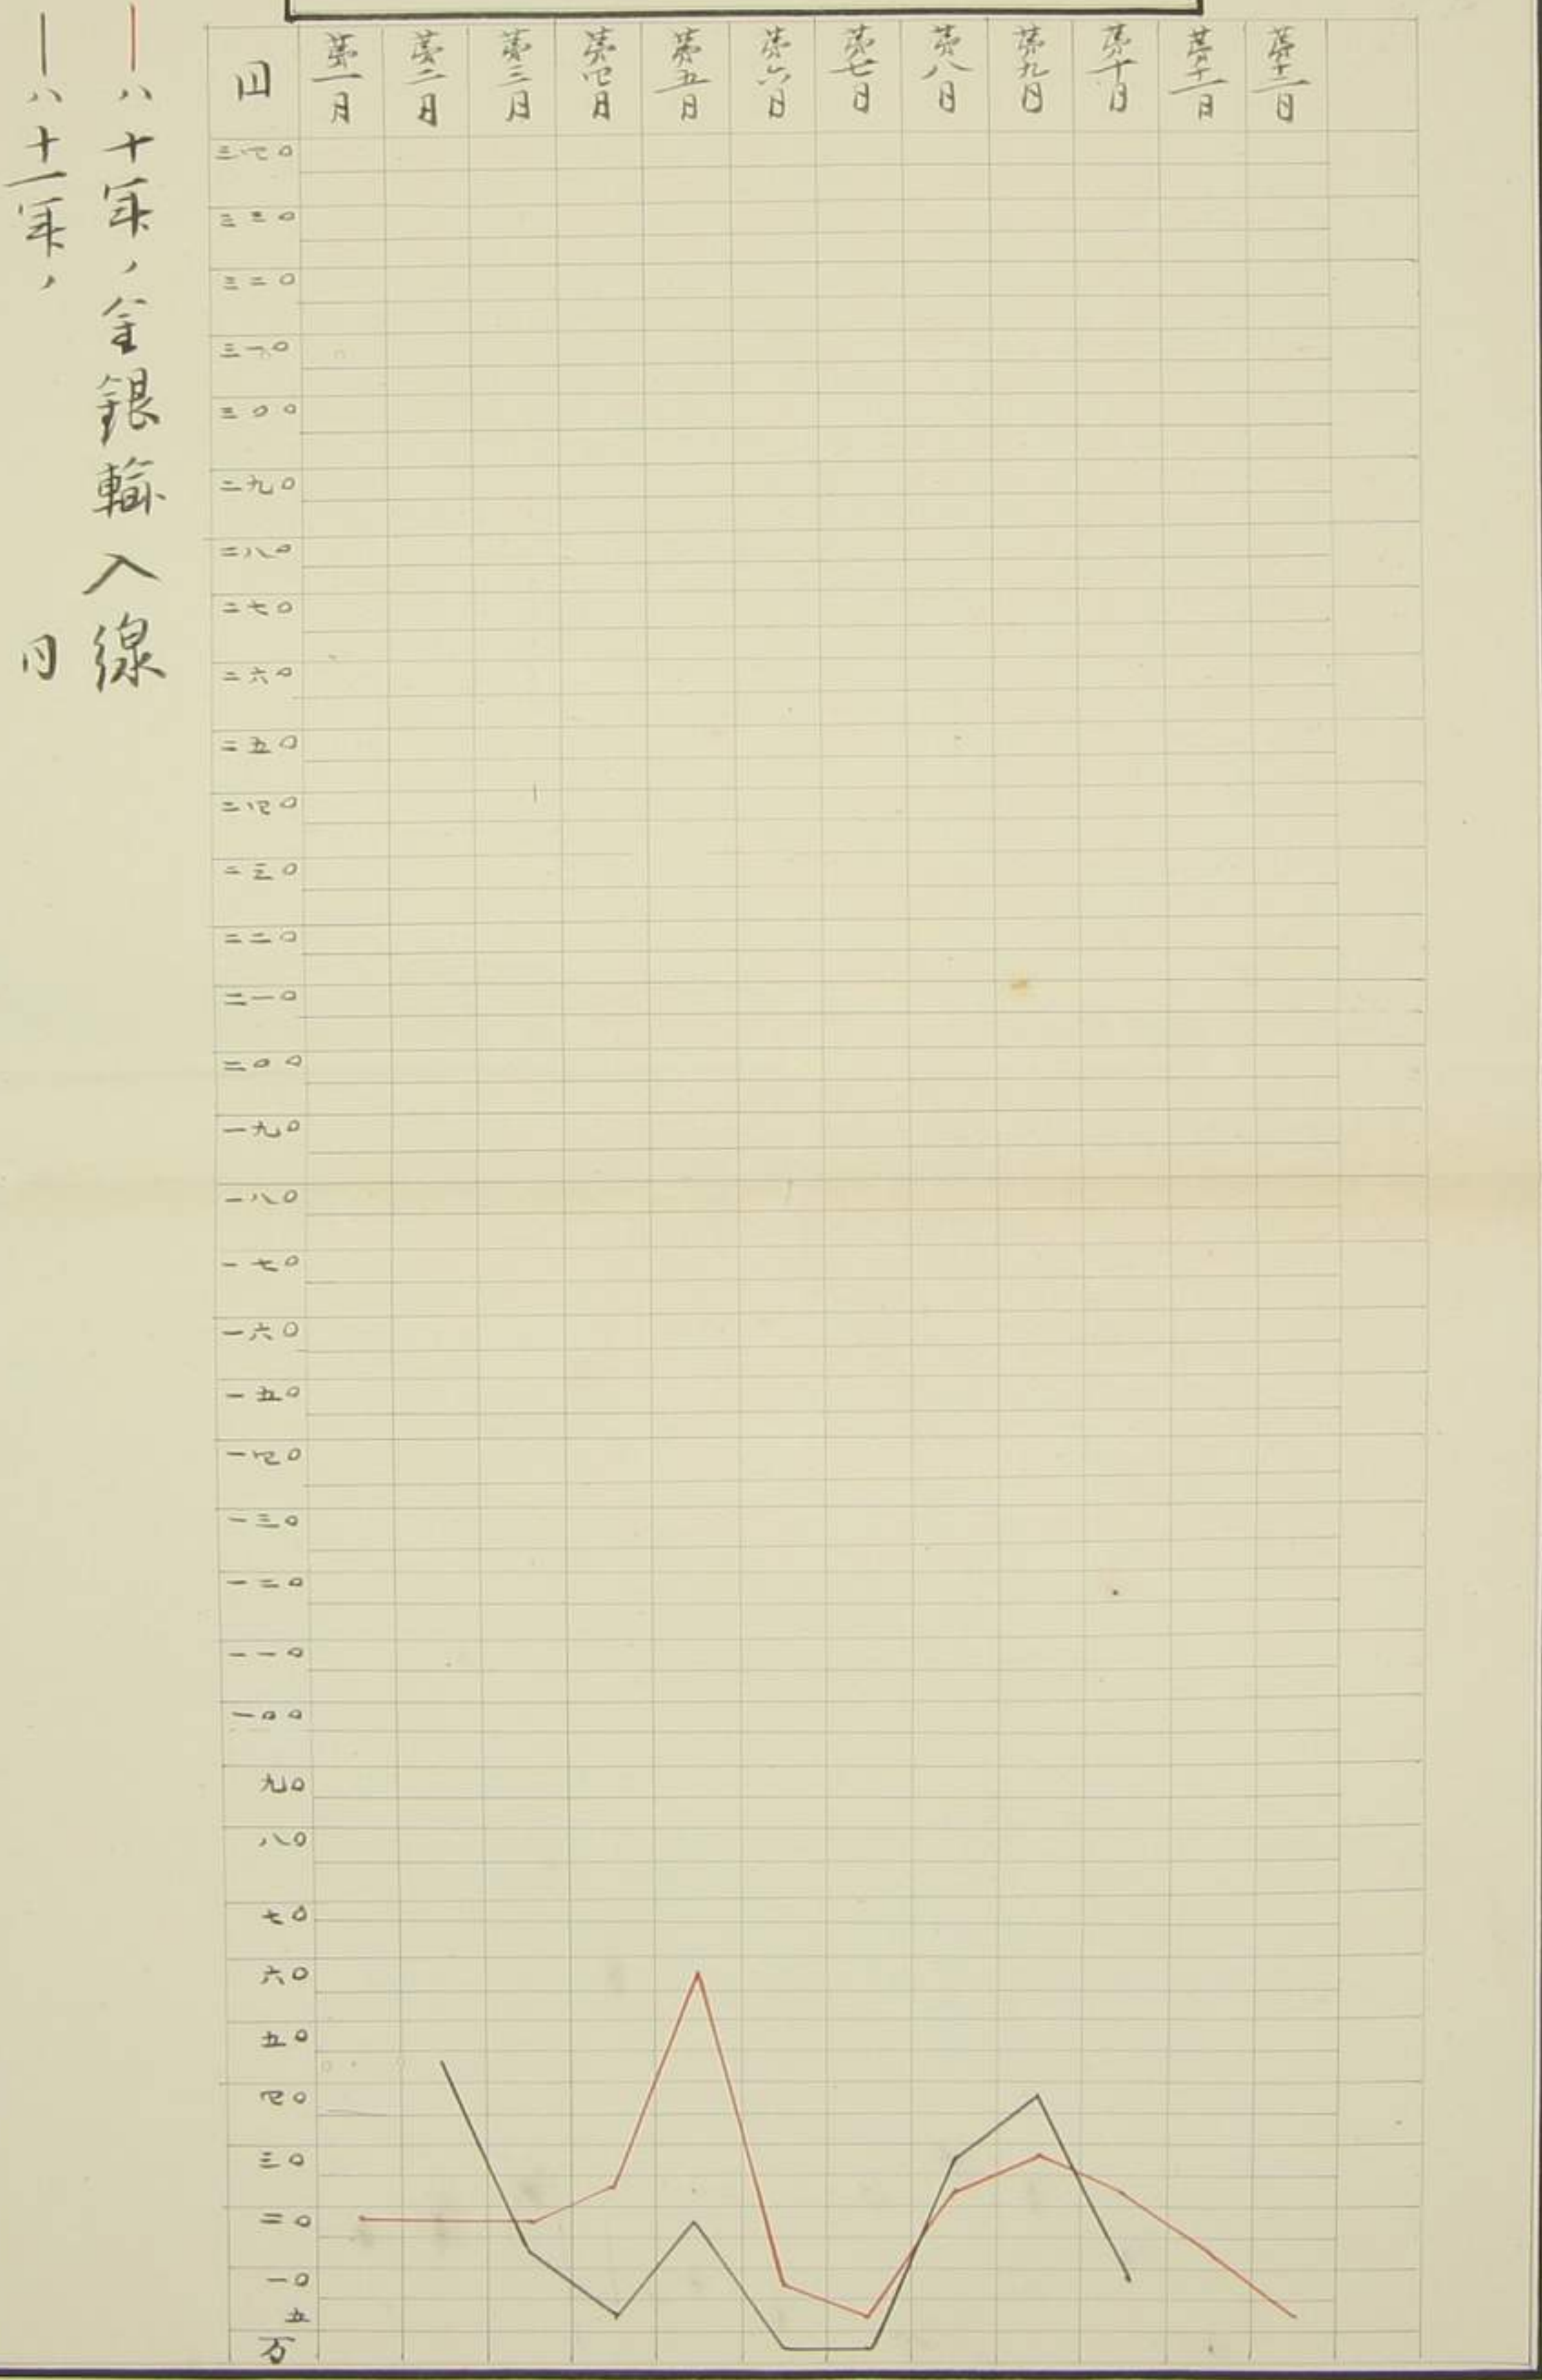 ハ十年ノ金銀輸入線
ハ十一年ノ 同
円
第一月
第二月
第三月
第四月
第五月
第六月
第七月
第八月
第九月
第十月
第十一月
第十二月
三四〇
三三〇
三二〇
三一〇
三〇〇
二九〇
二八〇
二七〇
二六〇
二五〇
二四〇
二三〇
二二〇
二一〇
二〇〇
一九〇
一八〇
一七〇
一六〇
一五〇
一四〇
一三〇
一二〇
一一〇
一〇〇
九〇
八〇
七〇
六〇
五〇
四〇
三〇
二〇
一〇
五
万